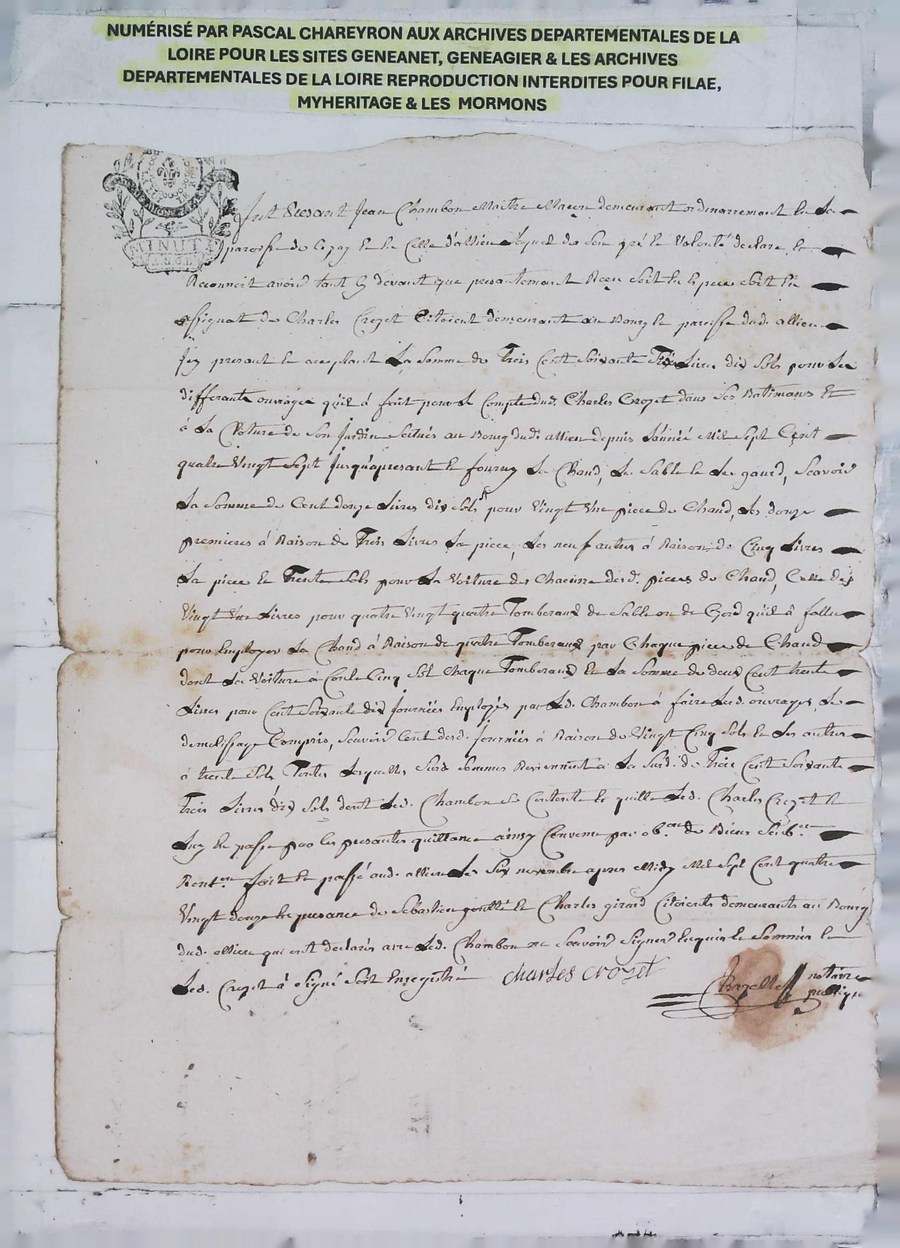 NUMÉRISÉ PAR PASCAL CHAREYRON AUX ARCHIVES DEPARTEMENTALES DE LA
LOIRE POUR LES SITES GENEANET, GENEAGIER & LES ARCHIVES
DEPARTEMENTALES DE LA LOIRE REPRODUCTION INTERDITES POUR FILAE,
MYHERITAGE & LES MORMONS
MINUTE
fut present Jean Chambon Maitre Maçon demeurant ordinairement en la
paroisse de et en celle d'allieu lequel de son gré et volonté declare et
Reconnoit avoir tant cy devant que presentement Reçu soit en espece soit en
assignat de Charles Crozet Citoient demeurant au Bourg et paroisse dud. allieu
icy present et acceptant La somme de Trois Cent soixante Trois livres dix sols pour les
differants ouvrages qu'il à fait pour le Compte dud. Charles Crozet dans ses Batimans et
à La Cloture de son Jardin scitués au Bourg dud. allieu depuis L'année Mil sept Cent
quatre vingt sept jusqu'apresant et fourny La Chaud, Le sable et Les gaurd, scavoir
La somme de Cent douze Livres dix sols pour vingt une piece de Chaud, Les douze
premieres à Raison de Trois Livres La piece, Les neuf autres à Raison de Cinq Livres
La piece et Trente sols pour La voiture de Chacune desd. pieces de Chaud, Celle de
vingt une Livres pour quatre vingt quatre Tomberaux de sable ou de Gord qu'il à fallu
pour Employer La Chaud à Raison de quatre Tomberaux par Chaque piece de Chaud
dont La voiture à Couté Cinq sol Chaque Tomberaux et La somme de deux Cent trente
Livres pour Cent soixante dix journées Employés par Led. Chambon à faire Lesd. ouvrages, Le
demelissage Compris, scavoir Cent desd. journées à Raison de vingt Cinq sols et Les autres
à trente sols Toutes Lesquelles susd. sommes Reviennent à La susd. de Trois Cent soixante
trois Livres dix sols dont Led. Chambon se Contente et quitte Led. Charles Crozet et
Luy en passe par les presantes quittance ainsy Convenu par ob.on de Biens soub.on
Renon.on fait et passé aud. allieu Le six novembre apres Midy Mil sept Cent quatre
vingt douze en presance de Sebastien et Charles girard Citoients demeurants au Bourg
dud. allieu qui ont declarés avec Led. Chambon ne scavoir signer Enquis et sommés et
Led. Crozet à signé soit Enregistré charles crozet
notaire
publique